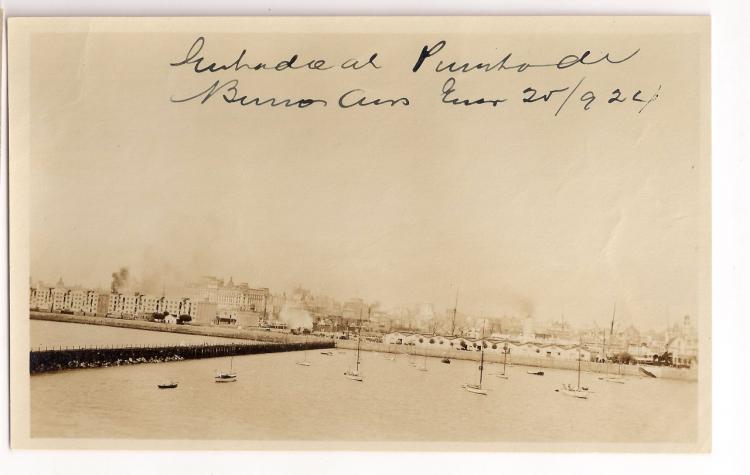 Entrada al Puerto de
Buenos Aires Ener 25/924